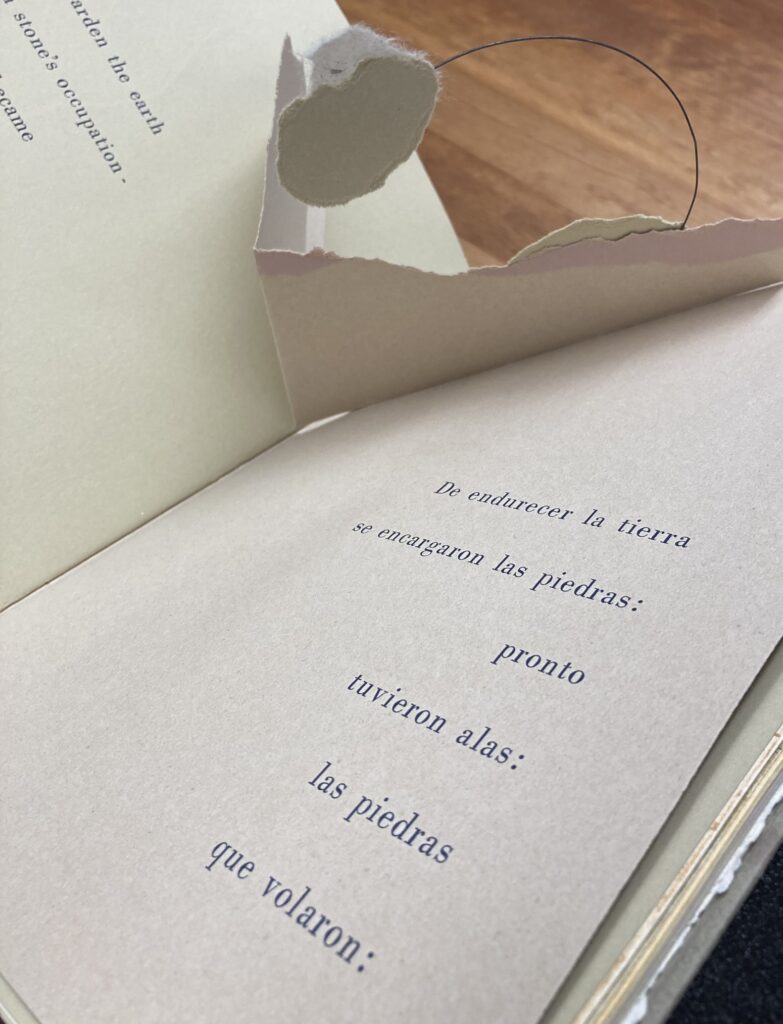 arden the earth
stone's occupation -
ecame
De endurecer la tierra
se encargaron las piedras:
pronto
tuvieron alas:
las piedras
que volaron: